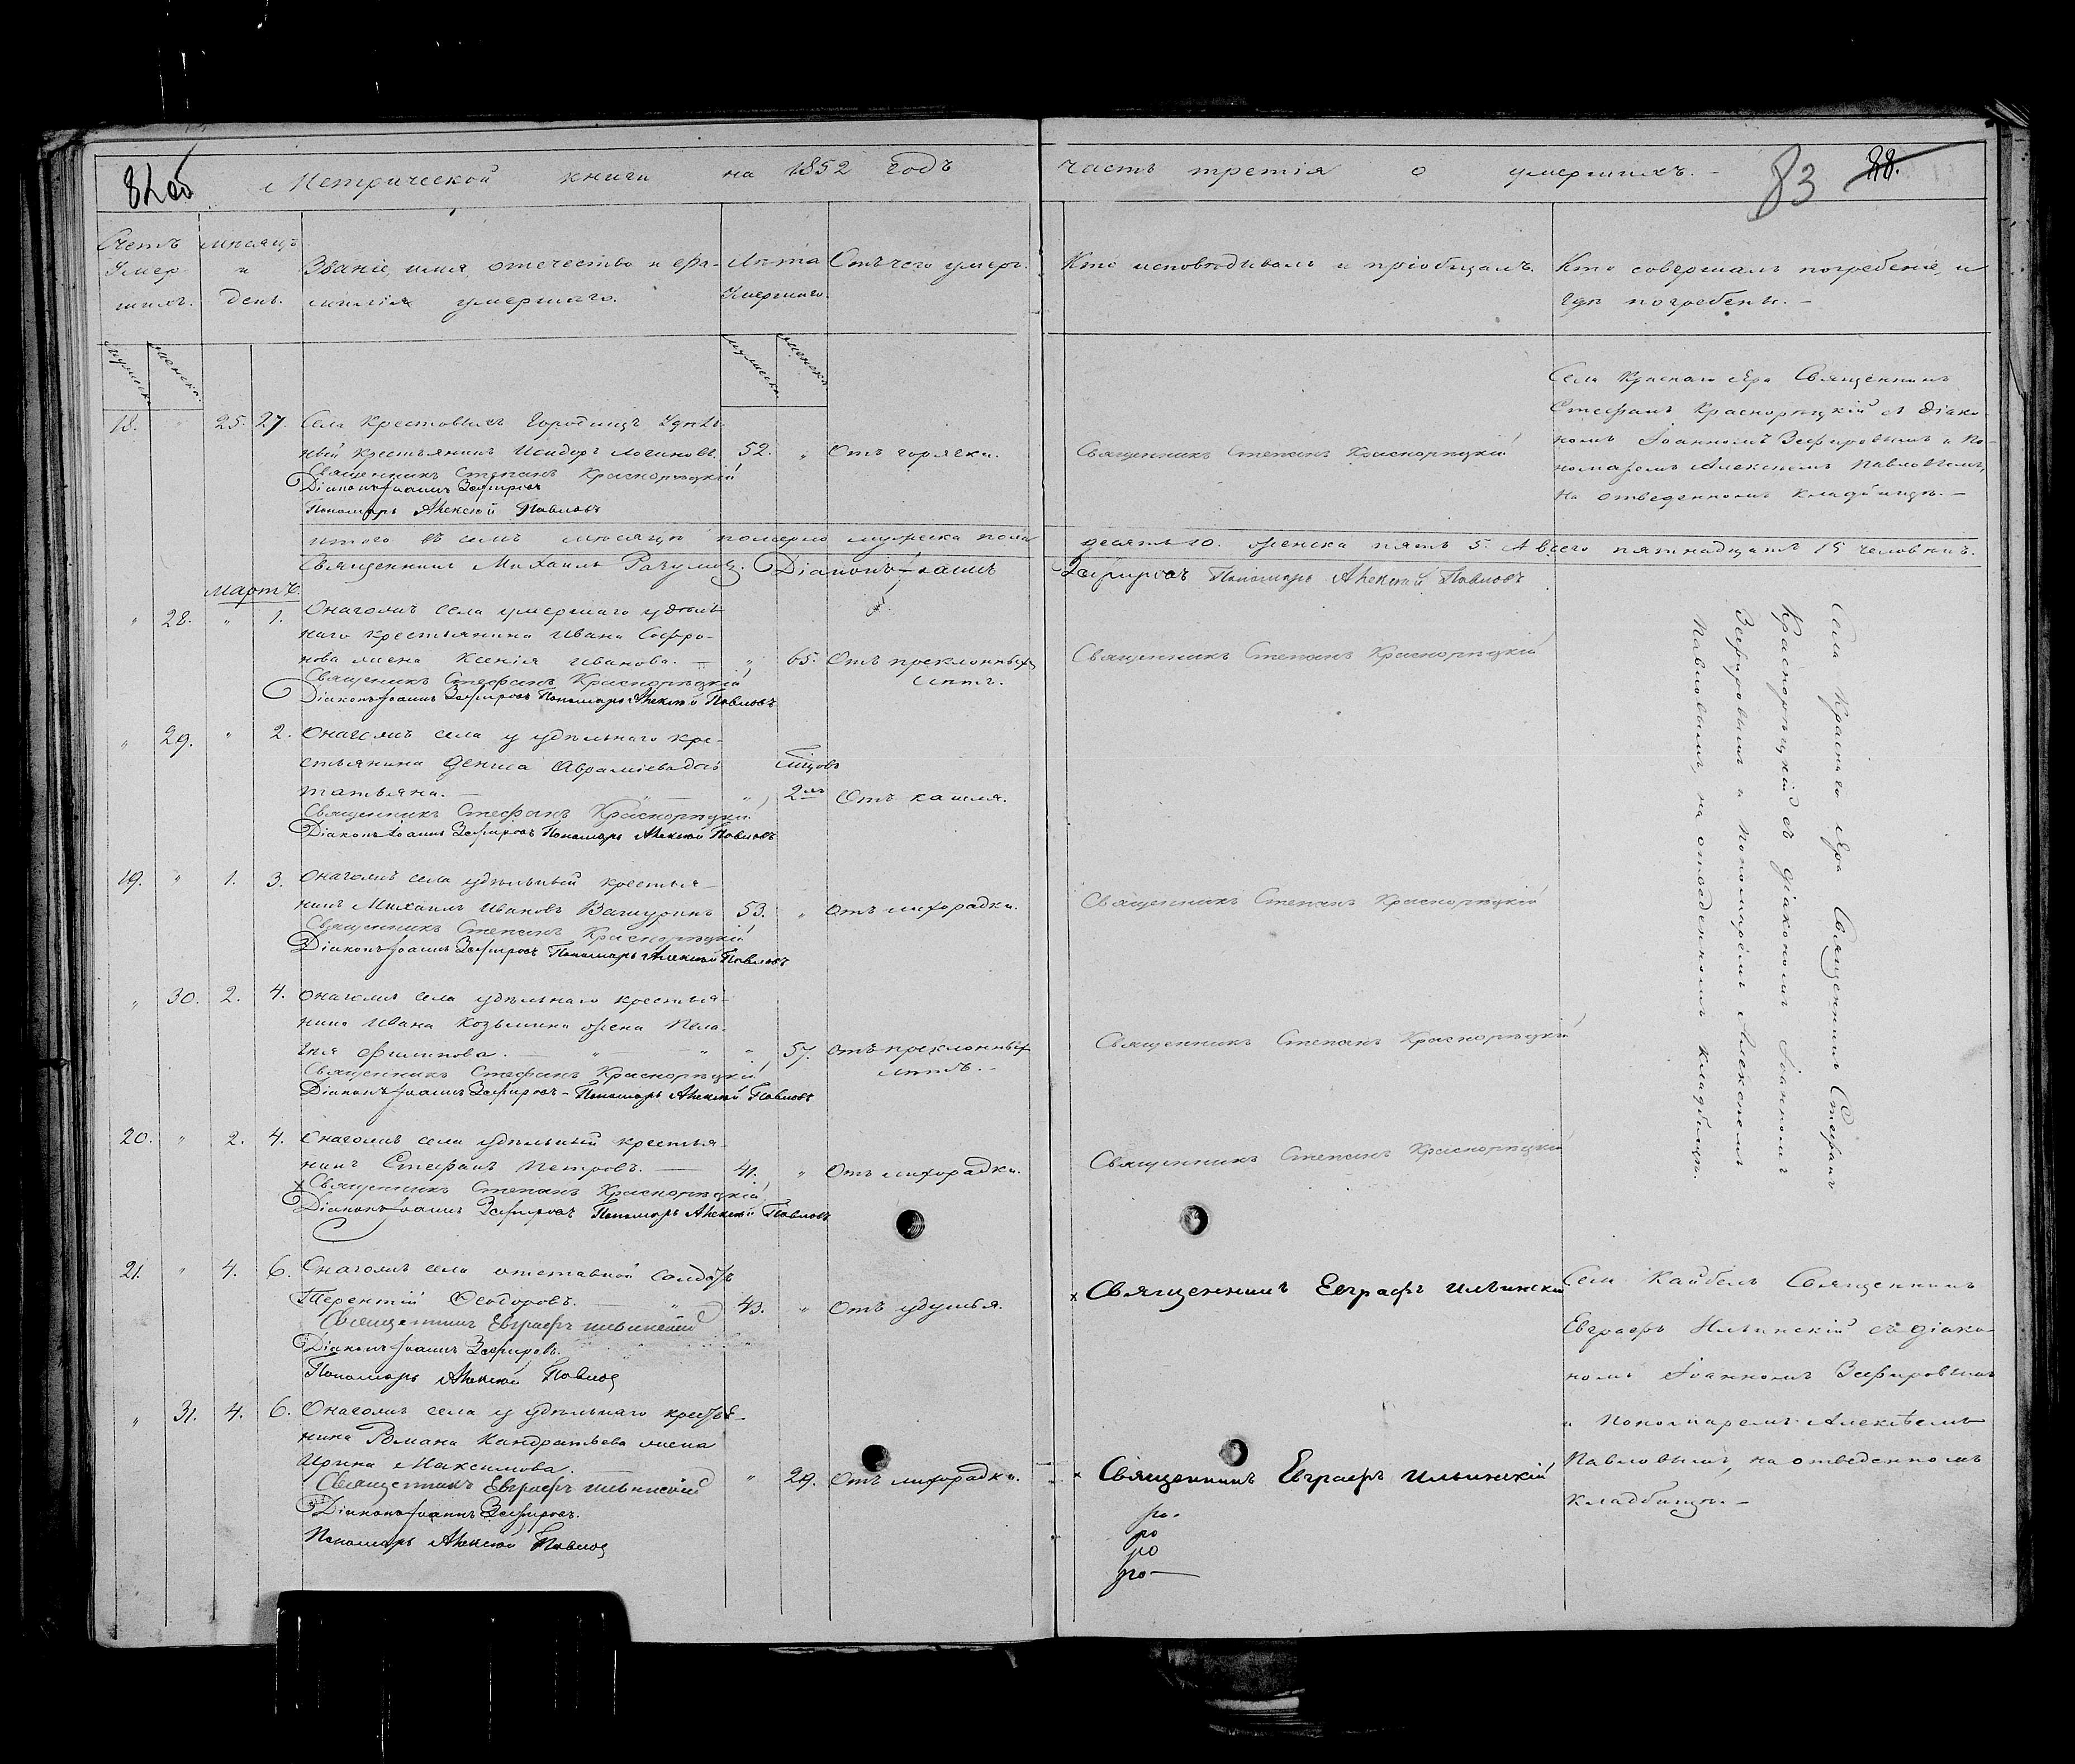 82об
Метрической книги на 1852 годъ
часть третія о умершихъ.
83
88.
Счетъ Умер-шихъ.
мѣсяцъ и день.
Званіе, имя, отечество и фа-
милія умершаго.
Лѣта Умершаго.
Отъ чего умеръ.
Кто исповѣдывалъ и пріобщалъ.
Кто совершалъ погребеніе, и
гдѣ погребены.
мужеска
женска
мужеска
женска
18. " 25. 27. Села Крестовыхъ Городищъ Удѣль-
ный крестьянинъ Исидоръ Логиновъ. 52. " Отъ горячки.
Священникъ Степанъ Краснорѣцкій
Діаконъ Іоаннъ Зефировъ
Пономарь Алексѣй Павловъ
Священникъ Степанъ Краснорѣцкій
Села Краснаго Яра Священникъ
Стефанъ Краснорѣцкій съ діако-
номъ Іоанномъ Зефировымъ и По-
номаремъ Алексѣемъ Павловымъ,
на отведенномъ кладбищѣ.
итого въ семъ мѣсяцѣ померло мужеска пола
десять 10. женска пять 5. А всего пятнадцать 15 человѣкъ.
Священникъ Михаилъ Діаконъ Іоаннъ
Зефировъ Пономарь Алексѣй Павловъ
Мартъ.
" 28. " 1. Онагожъ села умершаго удѣль-
наго крестьянина Ивана Софро-
нова жена Ксенія Иванова. " 65. Отъ преклонныхъ
лѣтъ.
Священникъ Стефанъ Краснорѣцкій
Діаконъ Іоаннъ Зефировъ Пономарь Алексѣй Павловъ
Священникъ Степанъ Краснорѣцкій
" 29. " 2. Онагожъ села у удѣльнаго кре-
стьянина Дениса Аврамьева дочь
Татьяна. " 2 Отъ кашля.
Священникъ Стефанъ Краснорѣцкій
Діаконъ Іоаннъ Зефировъ Пономарь Алексѣй Павловъ
19. " 1. 3. Онагожъ села удѣльный крестья-
нинъ Михаилъ Ивановъ Вачуринъ 53. " Отъ лихорадки.
Священникъ Степанъ Краснорѣцкій
Діаконъ Іоаннъ Зефировъ Пономарь Алексѣй Павловъ
Священникъ Степанъ Краснорѣцкій
" 30. 2. 4. Онагожъ села удѣльнаго крестья-
нина Ивана Козьмина жена Пела-
гия Филипова. " 57. Отъ преклонныхъ
лѣтъ.
Священникъ Стефанъ Краснорѣцкій
Діаконъ Іоаннъ Зефировъ Пономарь Алексѣй Павловъ
Священникъ Степанъ Краснорѣцкій
20. " 2. 4. Онагожъ села удѣльный крестья-
нинъ Стефанъ Петровъ. 41. " Отъ лихорадки.
Священникъ Степанъ Краснорѣцкій
Діаконъ Іоаннъ Зефировъ Пономарь Алексѣй Павловъ
Священникъ Степанъ Краснорѣцкій
Села Краснаго Яра Священникъ Стефанъ
Краснорѣцкій съ діакономъ Іоанномъ
Зефировымъ и Пономаремъ Алексѣемъ
Павловымъ, на отведенномъ кладбищѣ.
21. " 4. 6. Онагожъ села отставной солдатъ
Терентій Ѳеодоровъ. 43. " Отъ удушья.
Священникъ Евграфъ Ильинскій
Діаконъ Іоаннъ Зефировъ.
Пономарь Алексѣй Павловъ
Священникъ Евграфъ Ильинскій
Села Кайбелъ Священникъ
Евграфъ Ильинскій съ діако-
номъ Іоанномъ Зефировымъ
и Пономаремъ Алексѣемъ
Павловымъ, на отведенномъ
кладбищѣ.
" 31. 4. 6. Онагожъ села у удѣльнаго крестья-
нина Романа Кандратьева жена
Ирина Максимова. " 29. Отъ лихорадки.
Священникъ Евграфъ Ильинскій
Діаконъ Іоаннъ Зефировъ.
Пономарь Алексѣй Павловъ
Священникъ Евграфъ Ильинскій